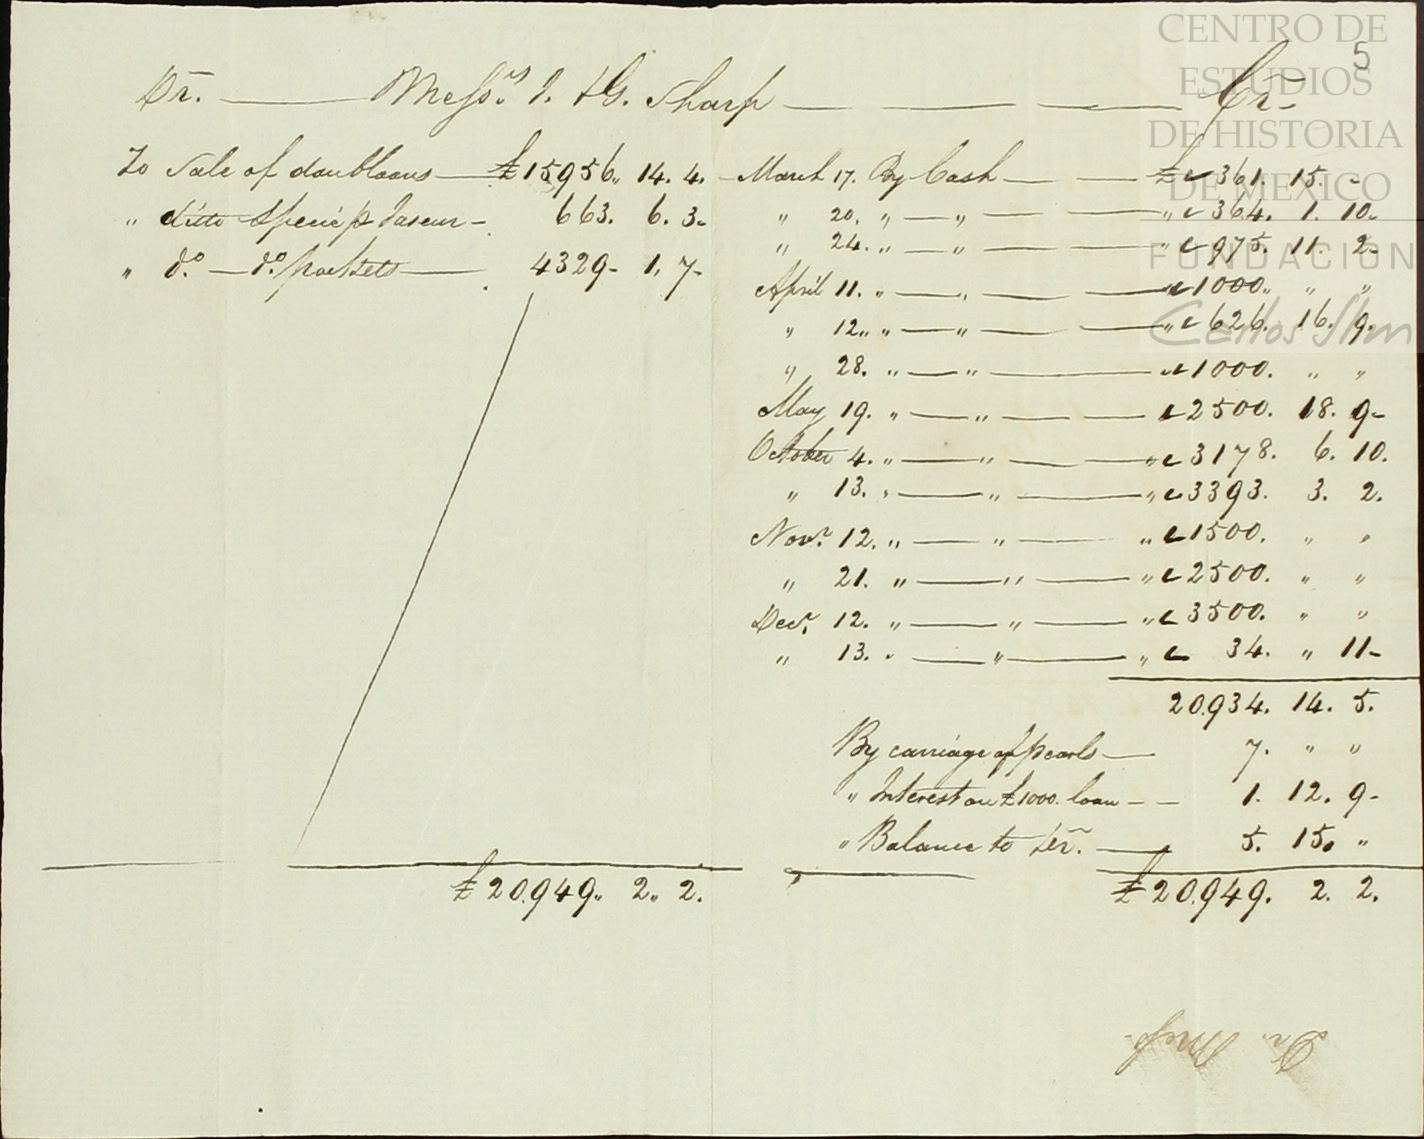 CENTRO DE
ESTUDIOS
DE HISTORIA
DE MEXICO
FUNDACION
Carlos Slim
5
Dr. Messrs. J. & G. Sharp Cr
To Sale of doubloons £15956" 14. 4.
" ditto Specie p 663. 6. 3
" do. do. packets 4329 1. 7
£ 20.949" 2" 2.
March 17. By Cash £ 361. 15. -
" 20. " " " 364. 1. 10.
" 24. " " " 975. 11. 2
April 11. " " " 1000" " "
" 12. " " " 626. 16. 9.
" 28. " " " 1000. " "
May 19. " " 2500. 18. 9
October 4. " " " 3178. 6. 10.
" 13. " " " 3393. 3. 2.
Novr. 12. " " " 1500. " "
" 21. " " " 2500. " "
Decr. 12. " " " 3500. " "
" 13. " " " 34. " 11
20.934. 14. 5.
By carriage of pearls 7. " "
" Interest on £1000. loan 1. 12. 9
" Balance to Dr. 5. 15. "
£ 20.949. 2. 2.
Dr. Mess